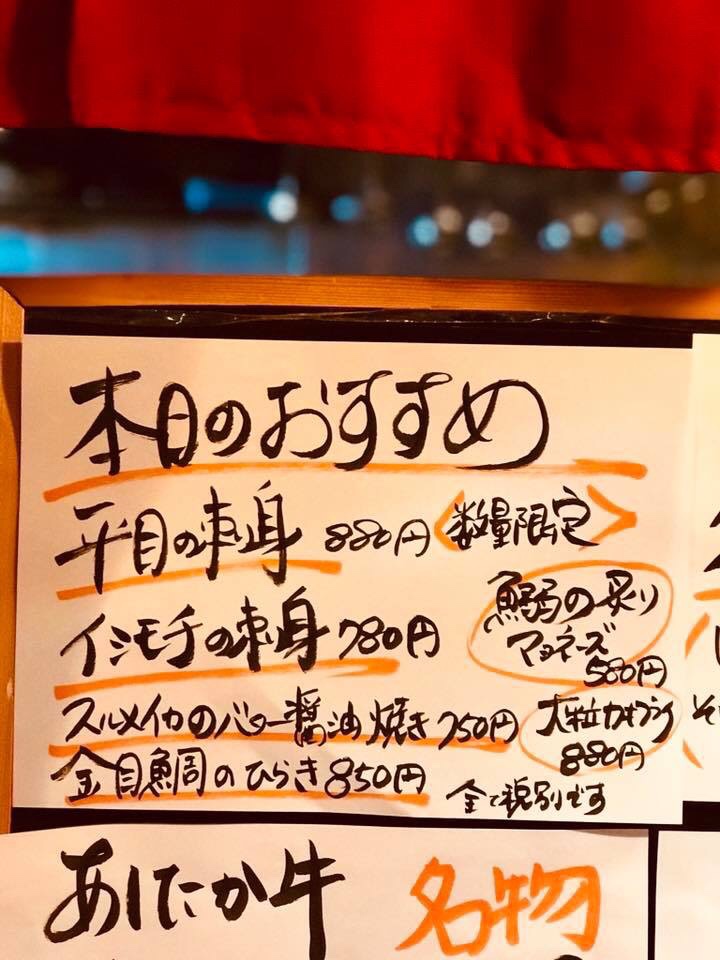 本日のおすすめ
平目の刺身 880円 <数量限定>
イシモチの刺身 780円
鰯の炙り
マヨネーズ
580円
スルメイカのバター醤油焼き 750円
大粒カキフライ
880円
金目鯛のひらき 850円
全て税別です
あしたか牛 名物